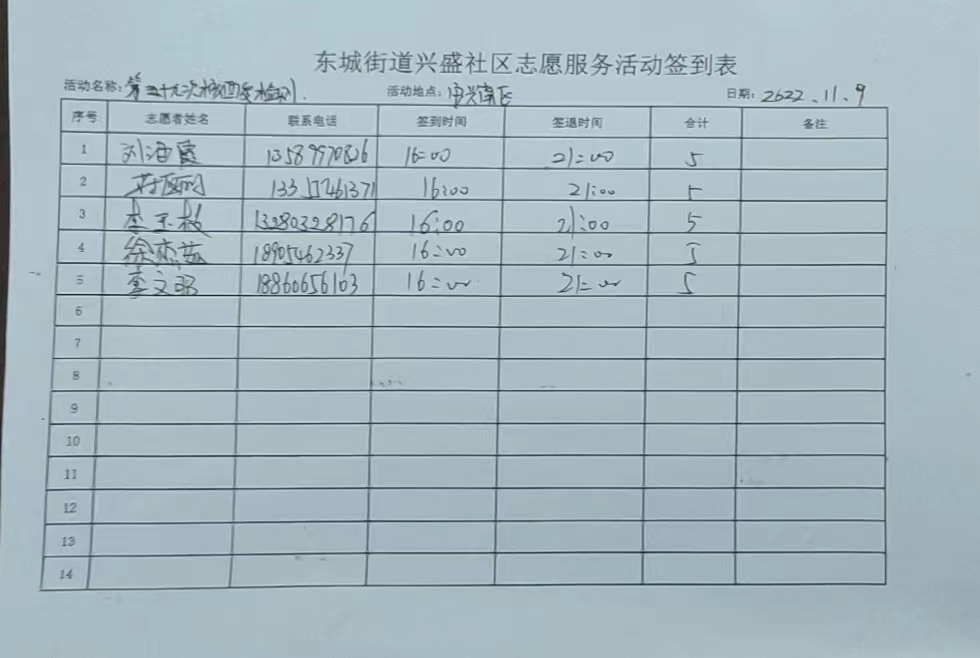 东城街道兴盛社区志愿服务活动签到表
活动名称：第三十九次核酸检测 活动地点： 日期：2022.11.9
序号 志愿者姓名 联系电话 签到时间 签退时间 合计 备注
1 刘海霞 13589970826 16:00 21:00 5
2 13355461371 16:00 21:00 5
3 李玉枝 13280328176 16:00 21:00 5
4 徐燕茹 18905462337 16:00 21:00 5
5 李文娟 18860656103 16:00 21:00 5
6
7
8
9
10
11
12
13
14